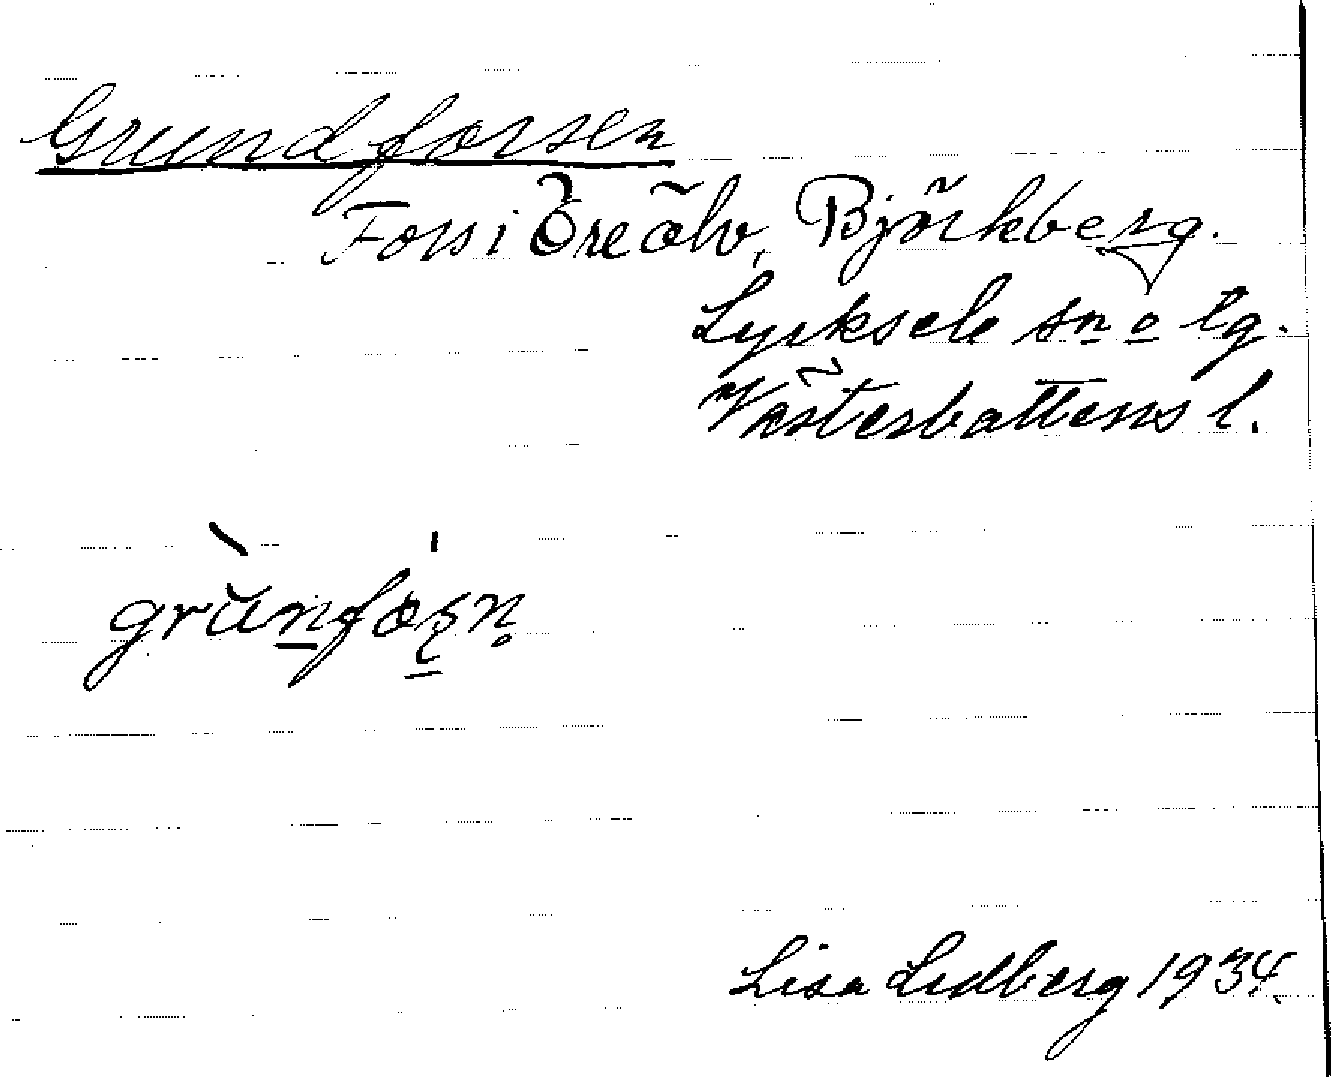 Grundforsen
Fors i Öreälv, Björkberg.
Lycksele sn o tg.
Västerbottens l.
Lisa Lidberg 1934